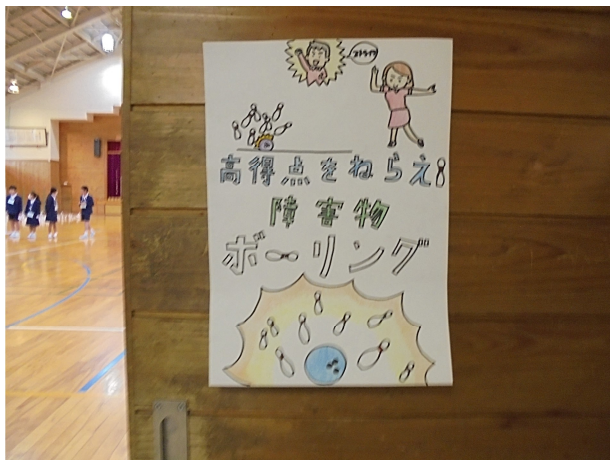 ストライク
高得点をねらえ!
障害物
ボーリング